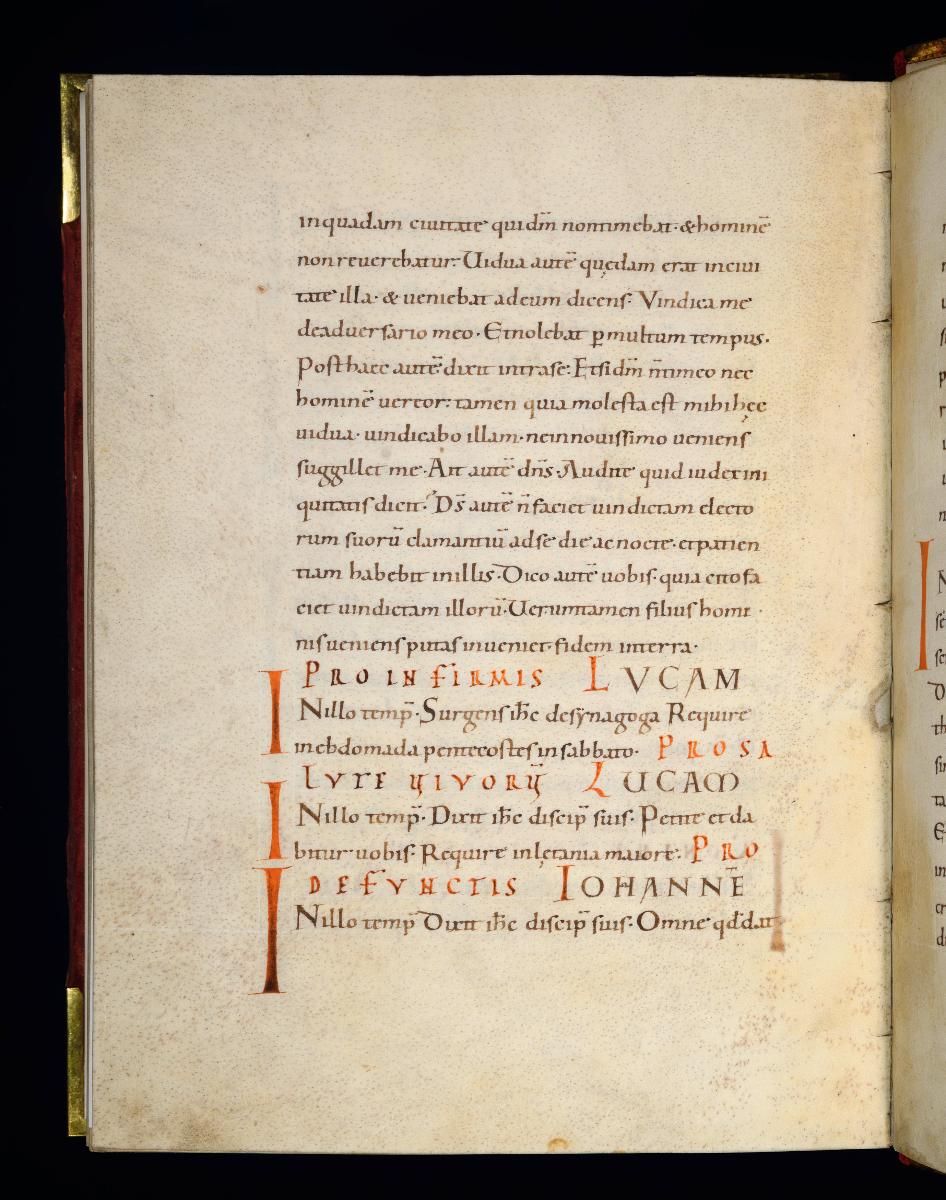 inquadam ciuitate quidm̄ nontimebat· &hominē
nonreuerebatur· Uidua autē quędam erat inciui
tate illa· & ueniebat adeum dicens· Vindica me
deaduersario meo· Etnolebat ꝑmultum tempus·
Posthaec autē dixit intrase· Etsidm̄ n̄timeo nec
hominē uereor· tamen quia molesta est mihihęc
uidua· uindicabo illam· neinnouissimo ueniens
suggillet me· Ait autē dn̄s· Audite quid iudexini
quitatis dicit· Ds̄ autē n̄faciet uindictam electo
rum suorū clamantiū adse die ac nocte· etpatien
tiam habebit inillis· Dico autē uobis· quia citofa
ciet uindictam illorū· Ueruntamen filius homi
nis ueniens putas inueniet· fidem interra·
PRO INFIRMIS LUCAM
INillo temp̄· Surgens ihc̄ desynagoga Require
inebdomada pentecostes insabbato· PROSA
LVTE VIVORV̄ LUCAM
INillo temp̄· Dixit ihc̄ discip̄ suis· Petite etda
bitur uobis· Require inlętania maiore· PRO
DEFVNCTIS IOHANNĒ
INillo temp̄ Dixit ihc̄ discip̄ suis· Omne qd̄dat